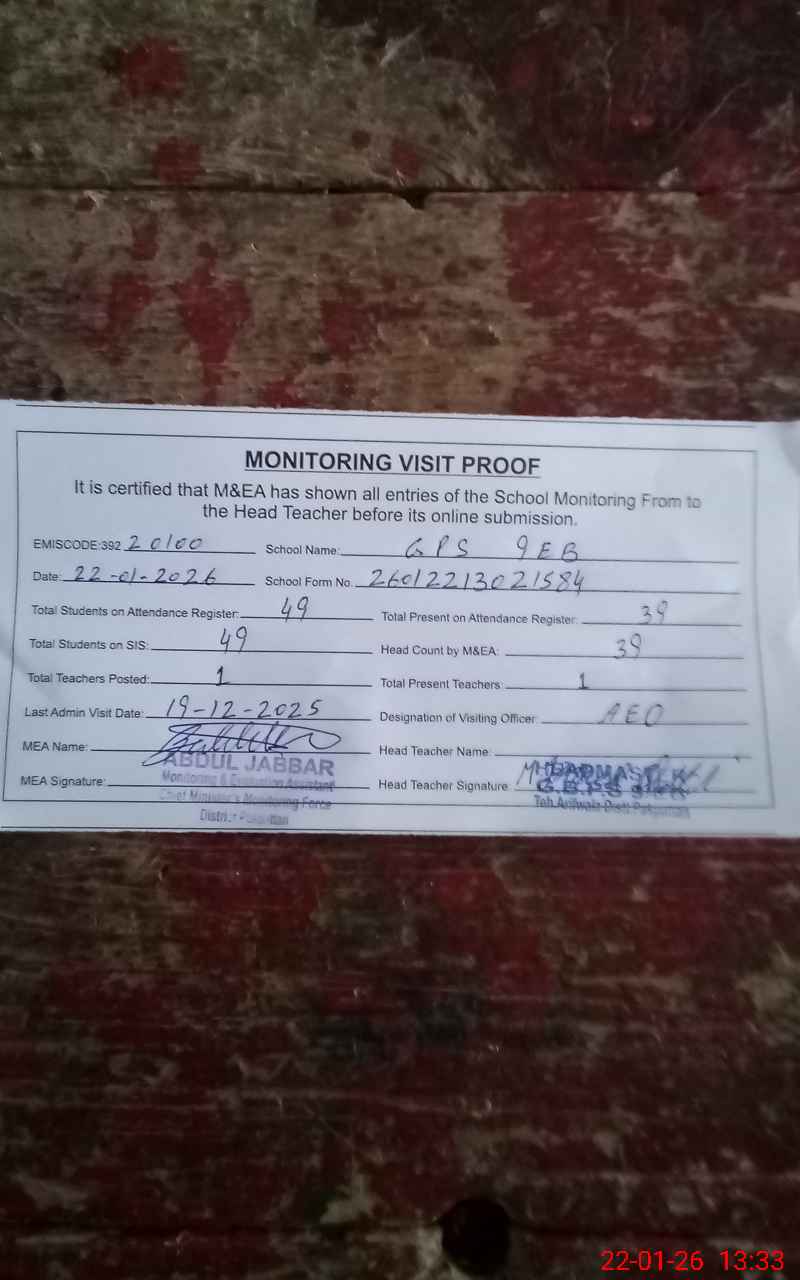 MONITORING VISIT PROOF
It is certified that M&EA has shown all entries of the School Monitoring From to
the Head Teacher before its online submission.
EMISCODE:392 20100 School Name: GPS 9EB
Date: 22-01-2026 School Form No. 26012213021584
Total Students on Attendance Register: 49 Total Present on Attendance Register: 39
Total Students on SIS: 49 Head Count by M&EA: 39
Total Teachers Posted: 1 Total Present Teachers: 1
Last Admin Visit Date: 19-12-2025 Designation of Visiting Officer: AEO
MEA Name: Head Teacher Name:
ABDUL JABBAR
MEA Signature: Monitoring & Evaluation Assistant Head Teacher Signature HEADMASTER
Chief Minister's Monitoring Force
District Pakpattan Teh Arifwala Distt Pakpattan
22-01-26 13:33